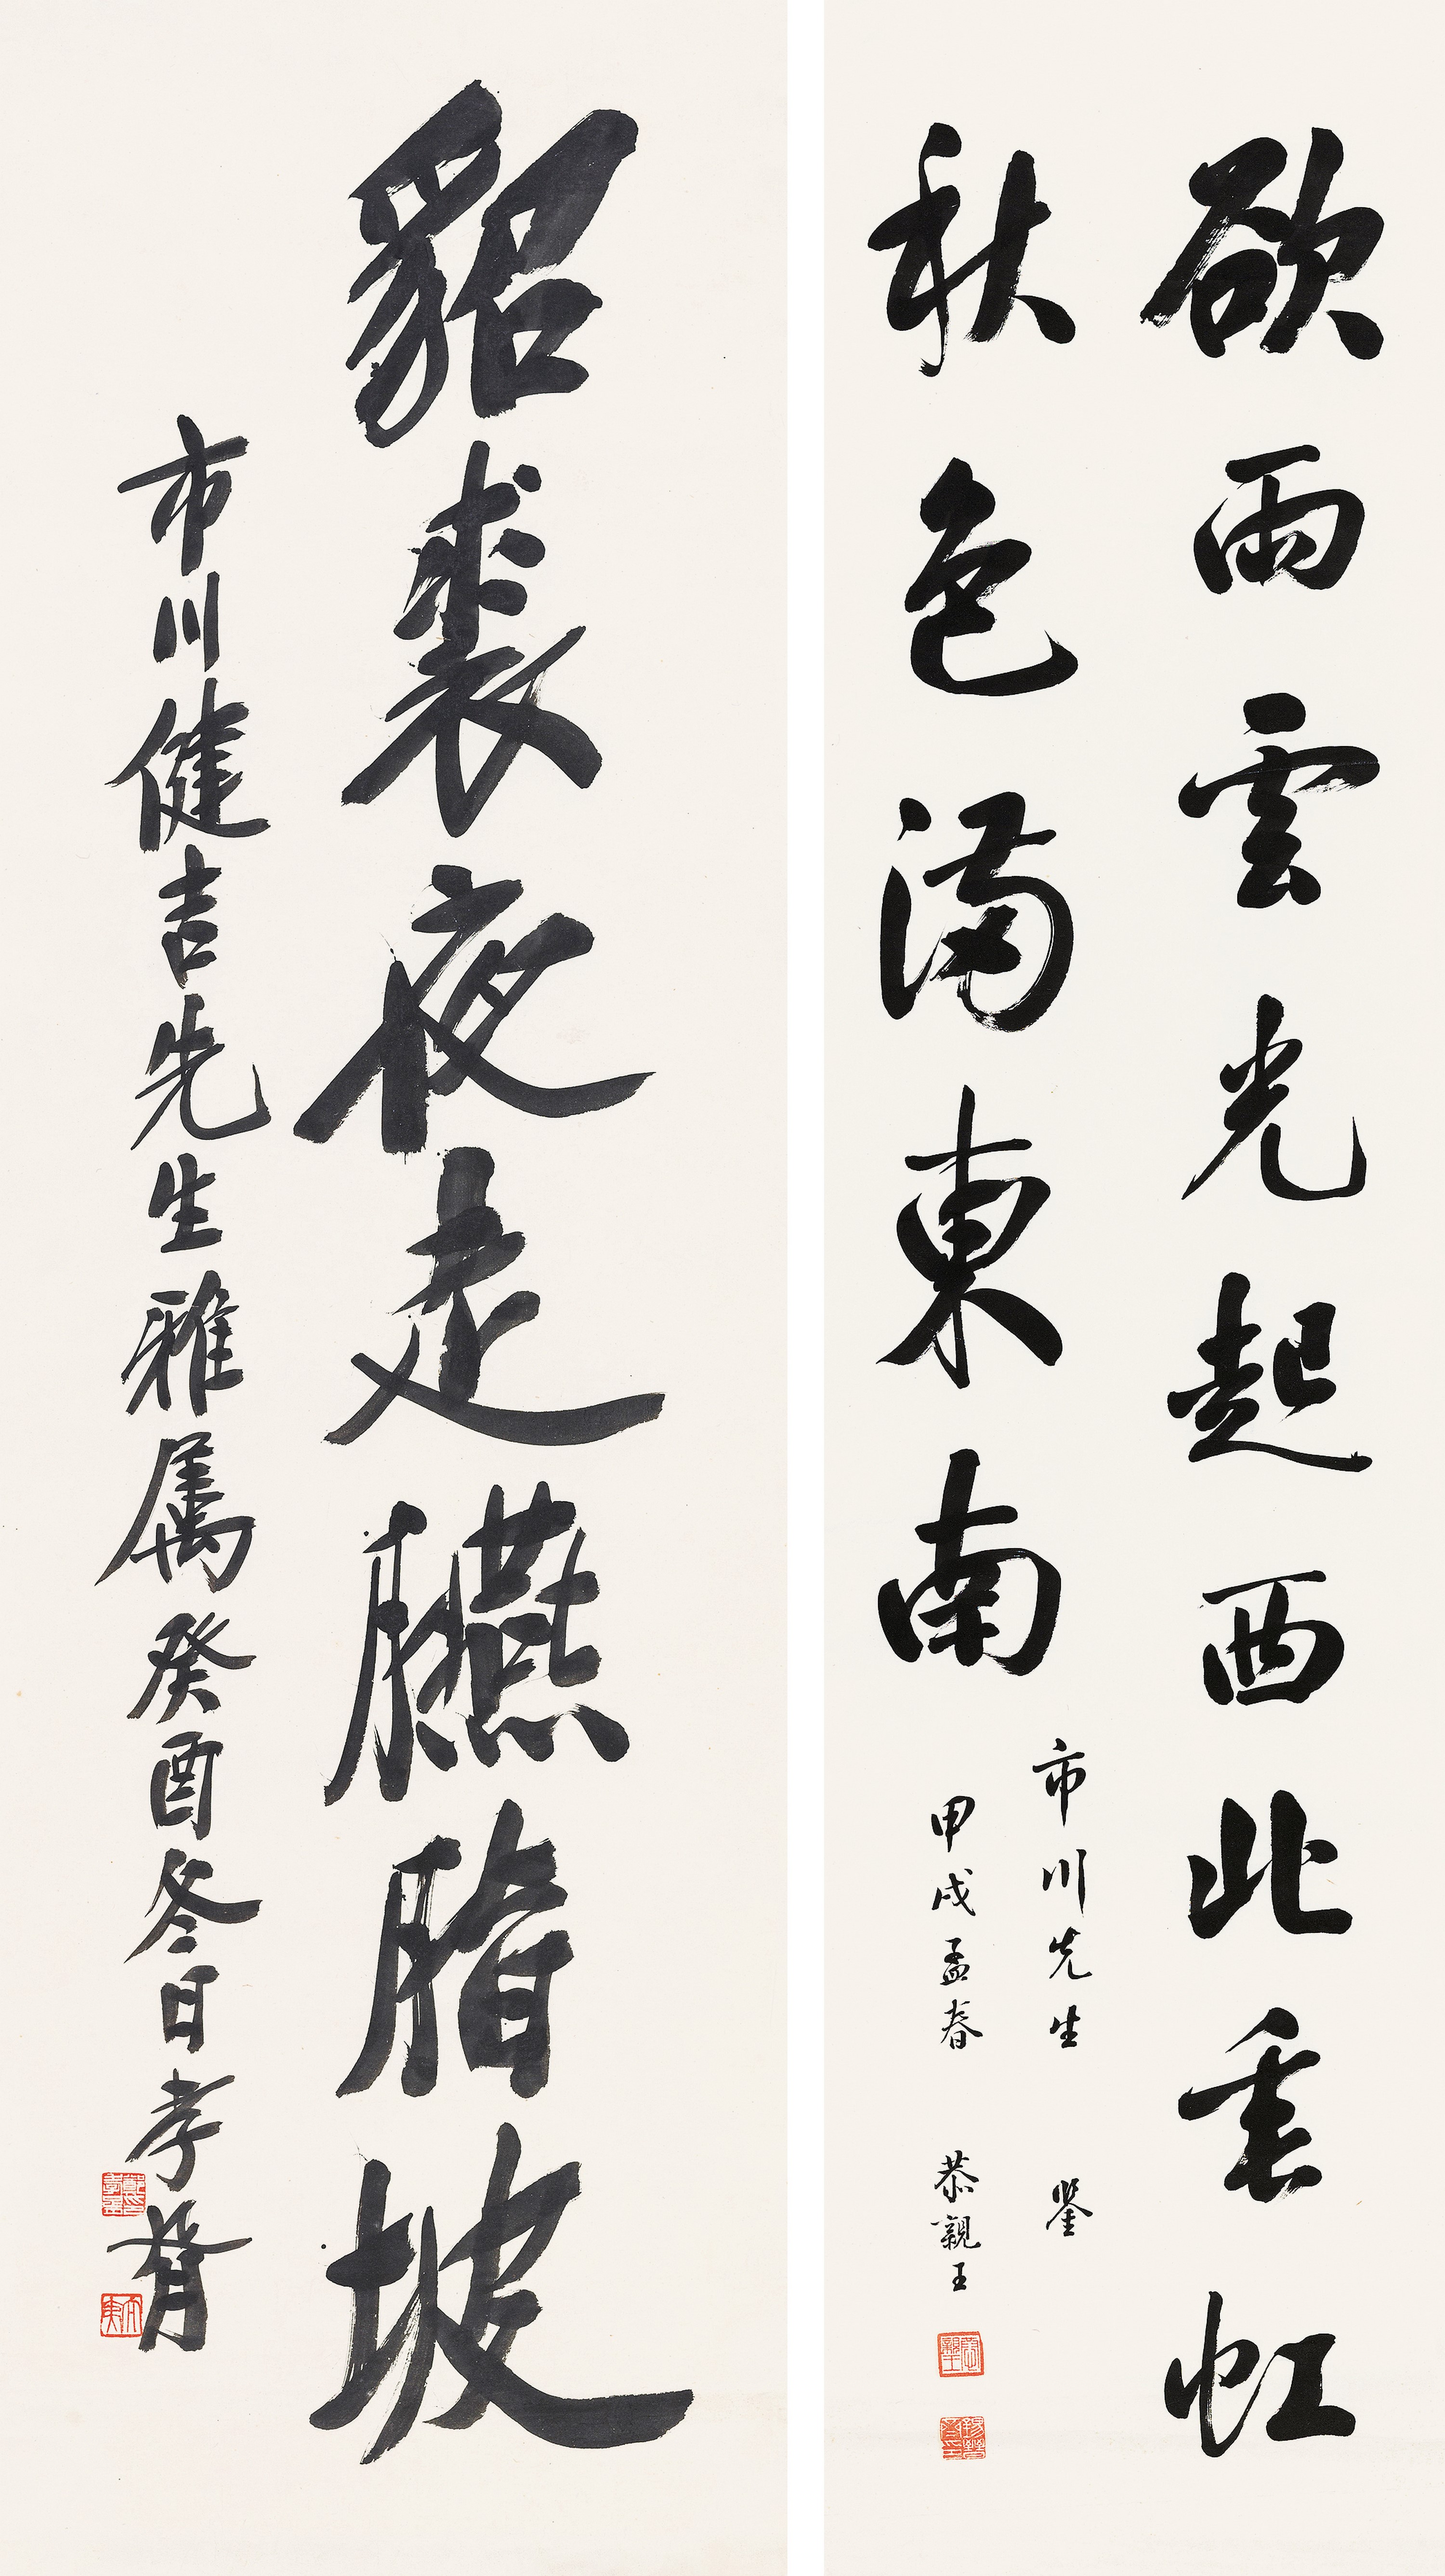 欲雨雲光起西北垂虹
秋色滿東南
市川先生 鑒
甲戌孟春 恭親王
恭親王
貂裘夜走臙脂坡
市川健吉先生雅属癸酉冬日孝胥
太夷